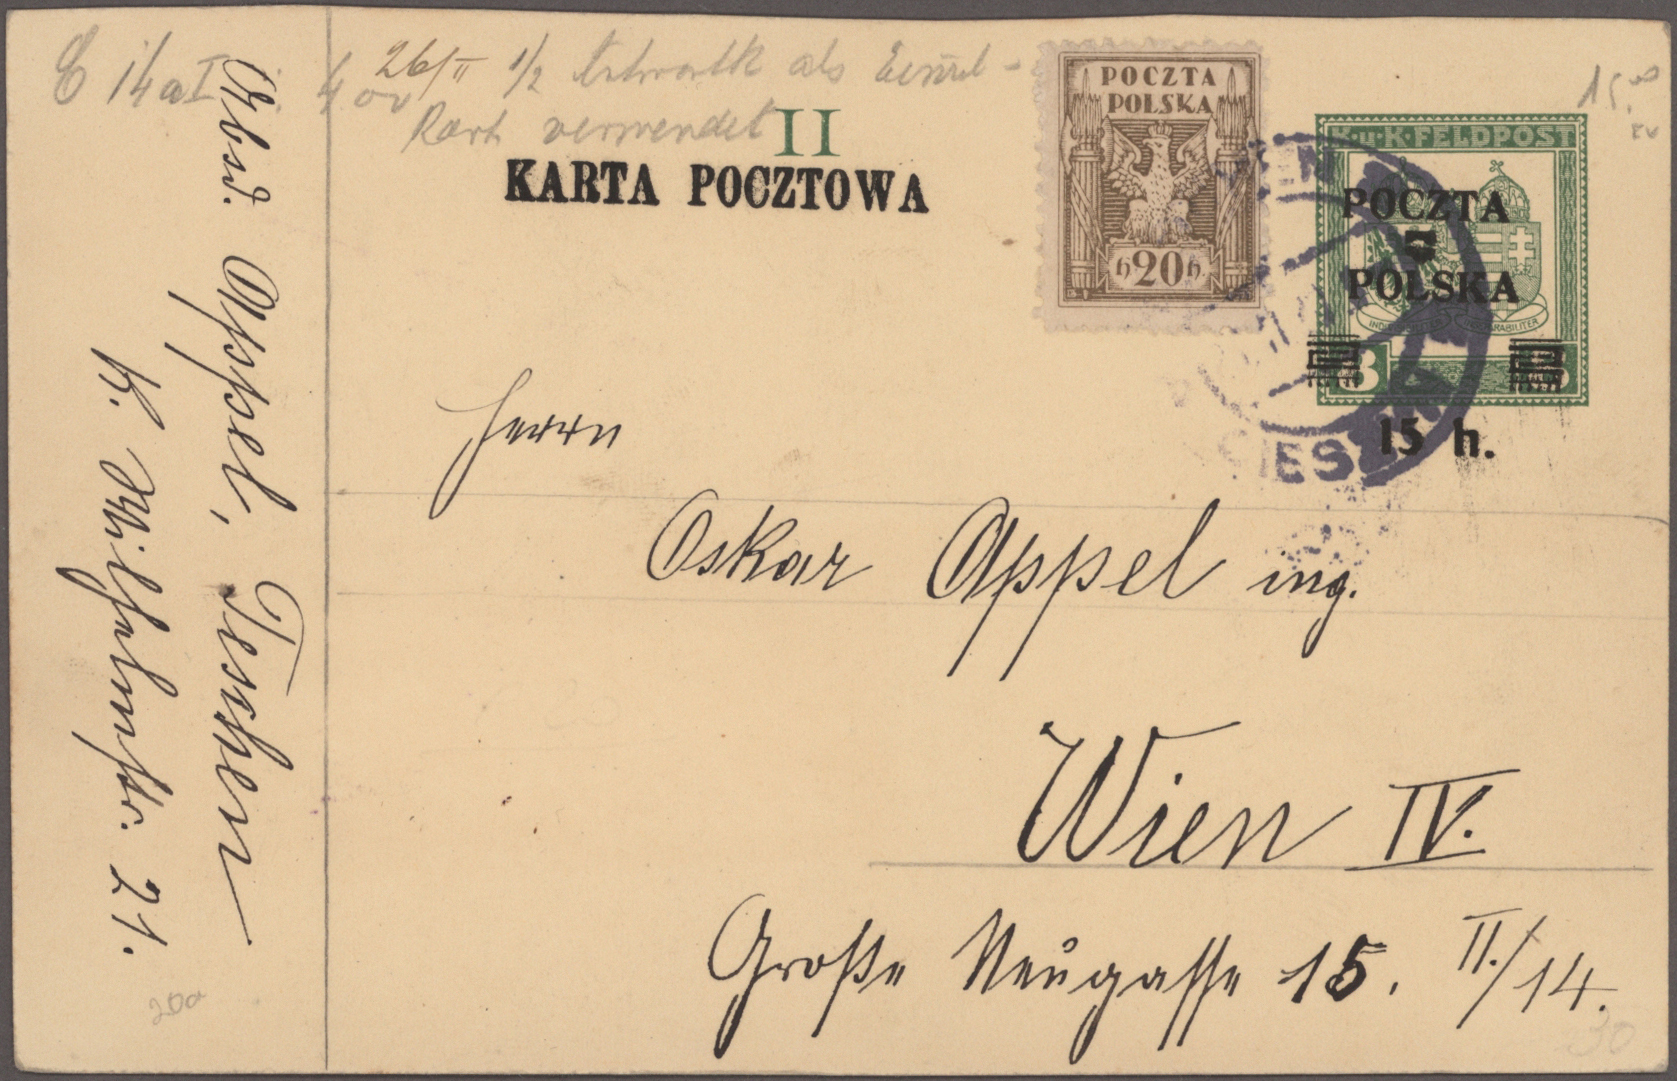 C 14a I
26/II 1/2
als
Kart verwendet
II
KARTA POCZTOWA
POCZTA
POLSKA
h 20 h.
K.u.K. FELDPOST
POCZTA
POLSKA
INDIVISIBILITER INSEPARABILITER
15 h.
CIESZYN
15.
Herrn
Oskar Appel ing.
Wien IV.
Große Neugasse 15. II./14.
Absd. Appel, Teschen
K. Wilhelmstr. 21.
20a
30